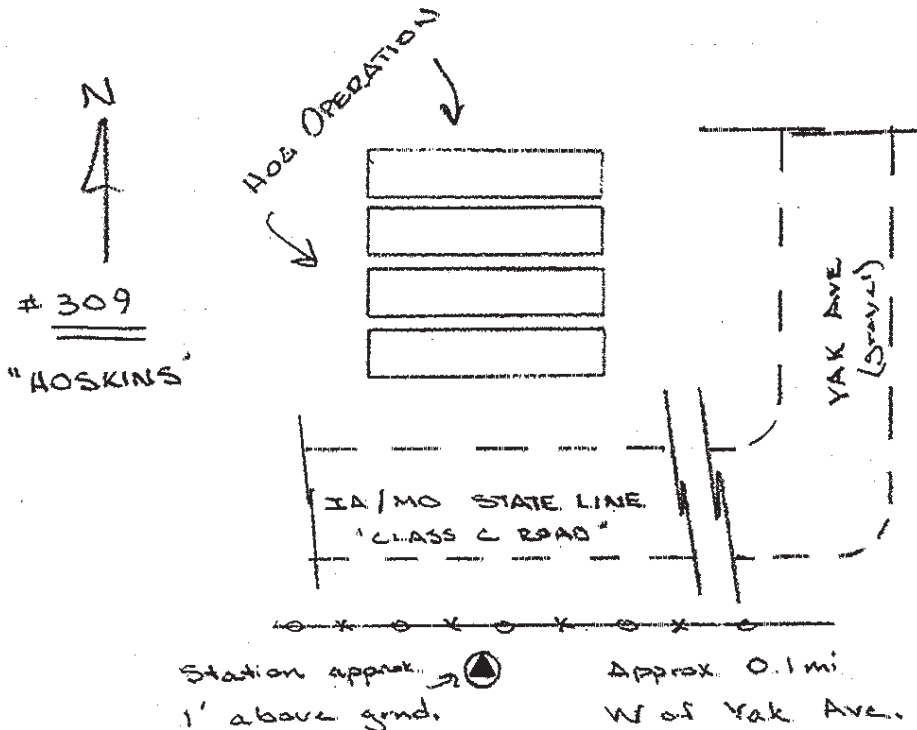 N
HOG OPERATION
# 309
"HOSKINS"
YAK AVE
(gravel)
IA/MO STATE LINE
"CLASS C ROAD"
Station approx.
1' above grnd.
Approx. 0.1 mi
W of Yak Ave.